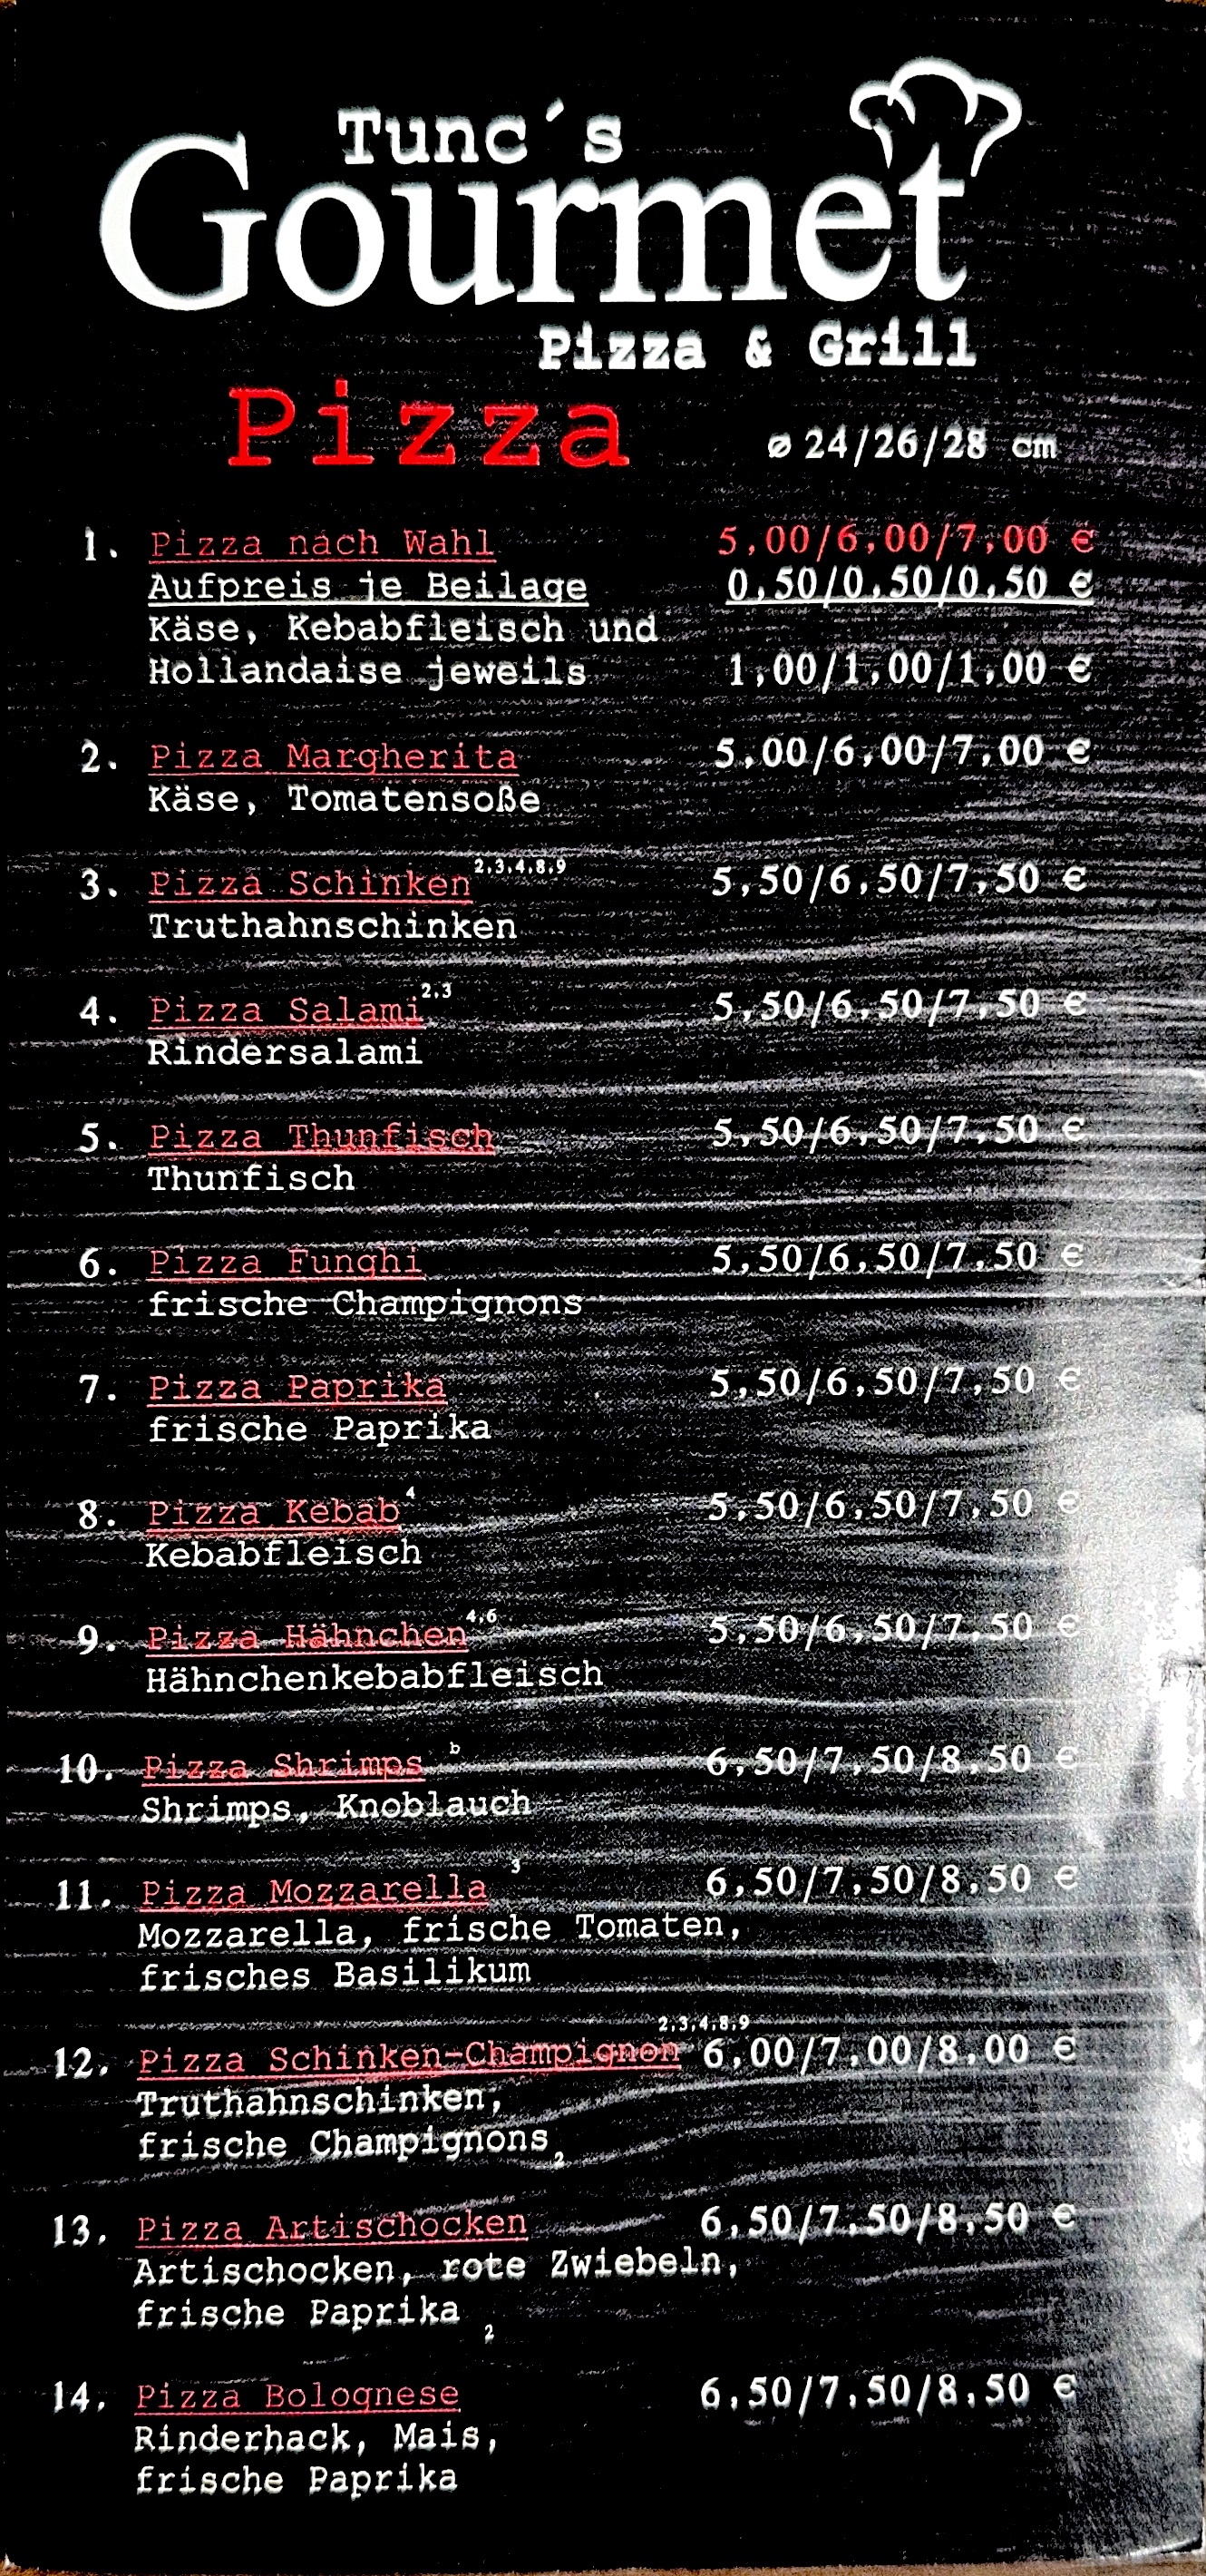 Tunc´s
Gourmet
Pizza & Grill
Pizza ⌀ 24/26/28 cm
1. Pizza nach Wahl 5,00/6,00/7,00 €
Aufpreis je Beilage 0,50/0,50/0,50 €
Käse, Kebabfleisch und
Hollandaise jeweils 1,00/1,00/1,00 €
2. Pizza Margherita 5,00/6,00/7,00 €
Käse, Tomatensoße
3. Pizza Schinken 2,3,4,8,9 5,50/6,50/7,50 €
Truthahnschinken
4. Pizza Salami 2,3 5,50/6,50/7,50 €
Rindersalami
5. Pizza Thunfisch 5,50/6,50/7,50 €
Thunfisch
6. Pizza Funghi 5,50/6,50/7,50 €
frische Champignons
7. Pizza Paprika 5,50/6,50/7,50 €
frische Paprika
8. Pizza Kebab 4 5,50/6,50/7,50 €
Kebabfleisch
9. Pizza Hähnchen 4,6 5,50/6,50/7,50 €
Hähnchenkebabfleisch
10. Pizza Shrimps b 6,50/7,50/8,50 €
Shrimps, Knoblauch
11. Pizza Mozzarella 3 6,50/7,50/8,50 €
Mozzarella, frische Tomaten,
frisches Basilikum
12. Pizza Schinken-Champignon 2,3,4,8,9 6,00/7,00/8,00 €
Truthahnschinken,
frische Champignons
2
13. Pizza Artischocken 6,50/7,50/8,50 €
Artischocken, rote Zwiebeln,
frische Paprika
2
14. Pizza Bolognese 6,50/7,50/8,50 €
Rinderhack, Mais,
frische Paprika